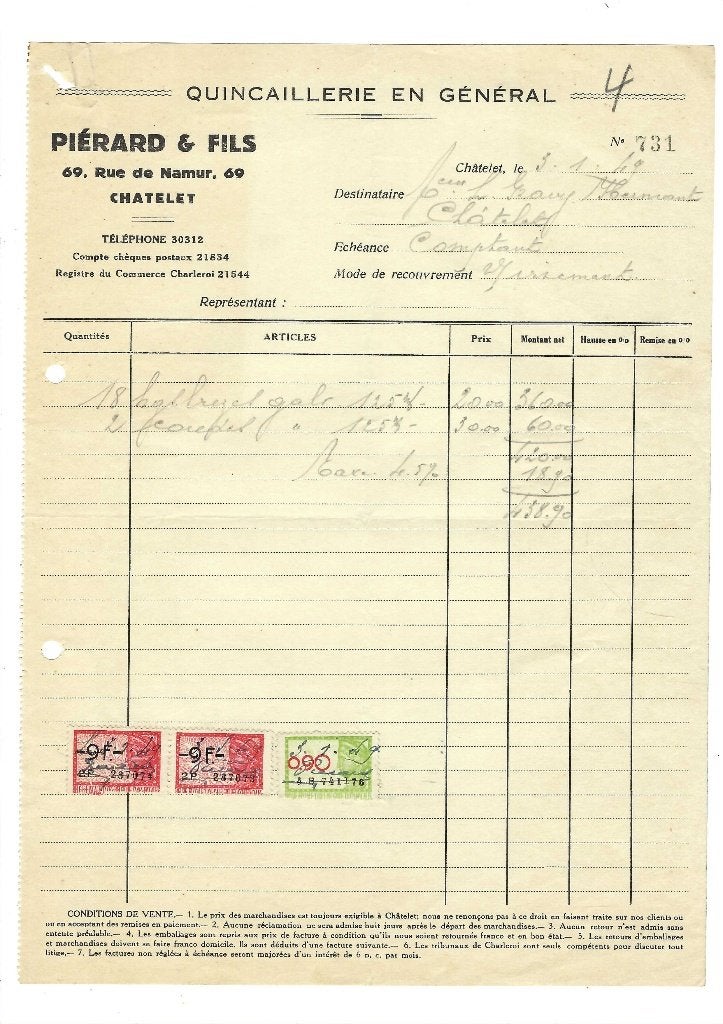 QUINCAILLERIE EN GÉNÉRAL
4
PIÉRARD & FILS
69, Rue de Namur, 69
CHATELET
TÉLÉPHONE 30312
Compte chèques postaux 21834
Registre du Commerce Charleroi 21544
Nº 731
Châtelet, le 3.1.49
Destinataire
Châtelet
Echéance Comptant
Mode de recouvrement Virement
Représentant :
Quantités ARTICLES Prix Montant net Hausse en o/o Remise en o/o
18 galv 125 20.00 360.00
2 " 125 30.00 60.00
420.00
Taxe 4.5% 18.90
438.90
-9F.- -9F.- 090
2P 237074 2P 741176
CONDITIONS DE VENTE.— 1. Le prix des marchandises est toujours exigible à Châtelet; nous ne renonçons pas à ce droit en faisant traite sur nos clients ou
ou en acceptant des remises en paiement.— 2. Aucune réclamation ne sera admise huit jours après le départ des marchandises.— 3. Aucun retour n'est admis sans
entente préalable.— 4. Les emballages sont repris aux prix de facture à condition qu'ils nous soient retournés franco et en bon état.— 5. Les retours d'emballages
et marchandises doivent se faire franco domicile. Ils sont déduits d'une facture suivante.— 6. Les tribunaux de Charleroi sont seuls compétents pour discuter tout
litige.— 7. Les factures non réglées à échéance seront majorées d'un intérêt de 6 p. c. par mois.